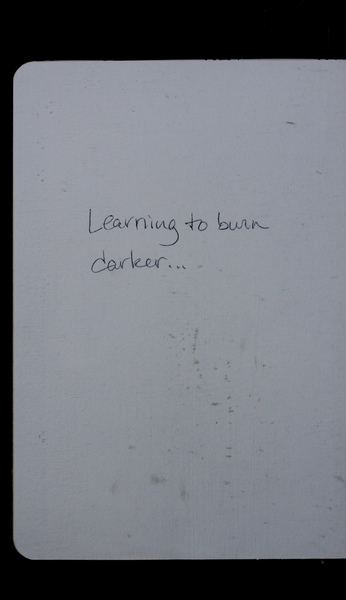 Learning to burn
darker...